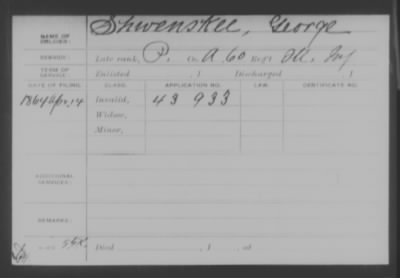 NAME OF SOLDIER: Shwenskee, George
SERVICE: Late rank, P. Co. A 60 Reg't Ill. Inf
TERM OF SERVICE: Enlisted , 1 Discharged , 1
DATE OF FILING. CLASS. APPLICATION NO. LAW. CERTIFICATE NO.
1864 Apr. 14 Invalid, 43 933
Widow,
Minor,
ADDITIONAL SERVICES:
REMARKS:
Died , 1 , at